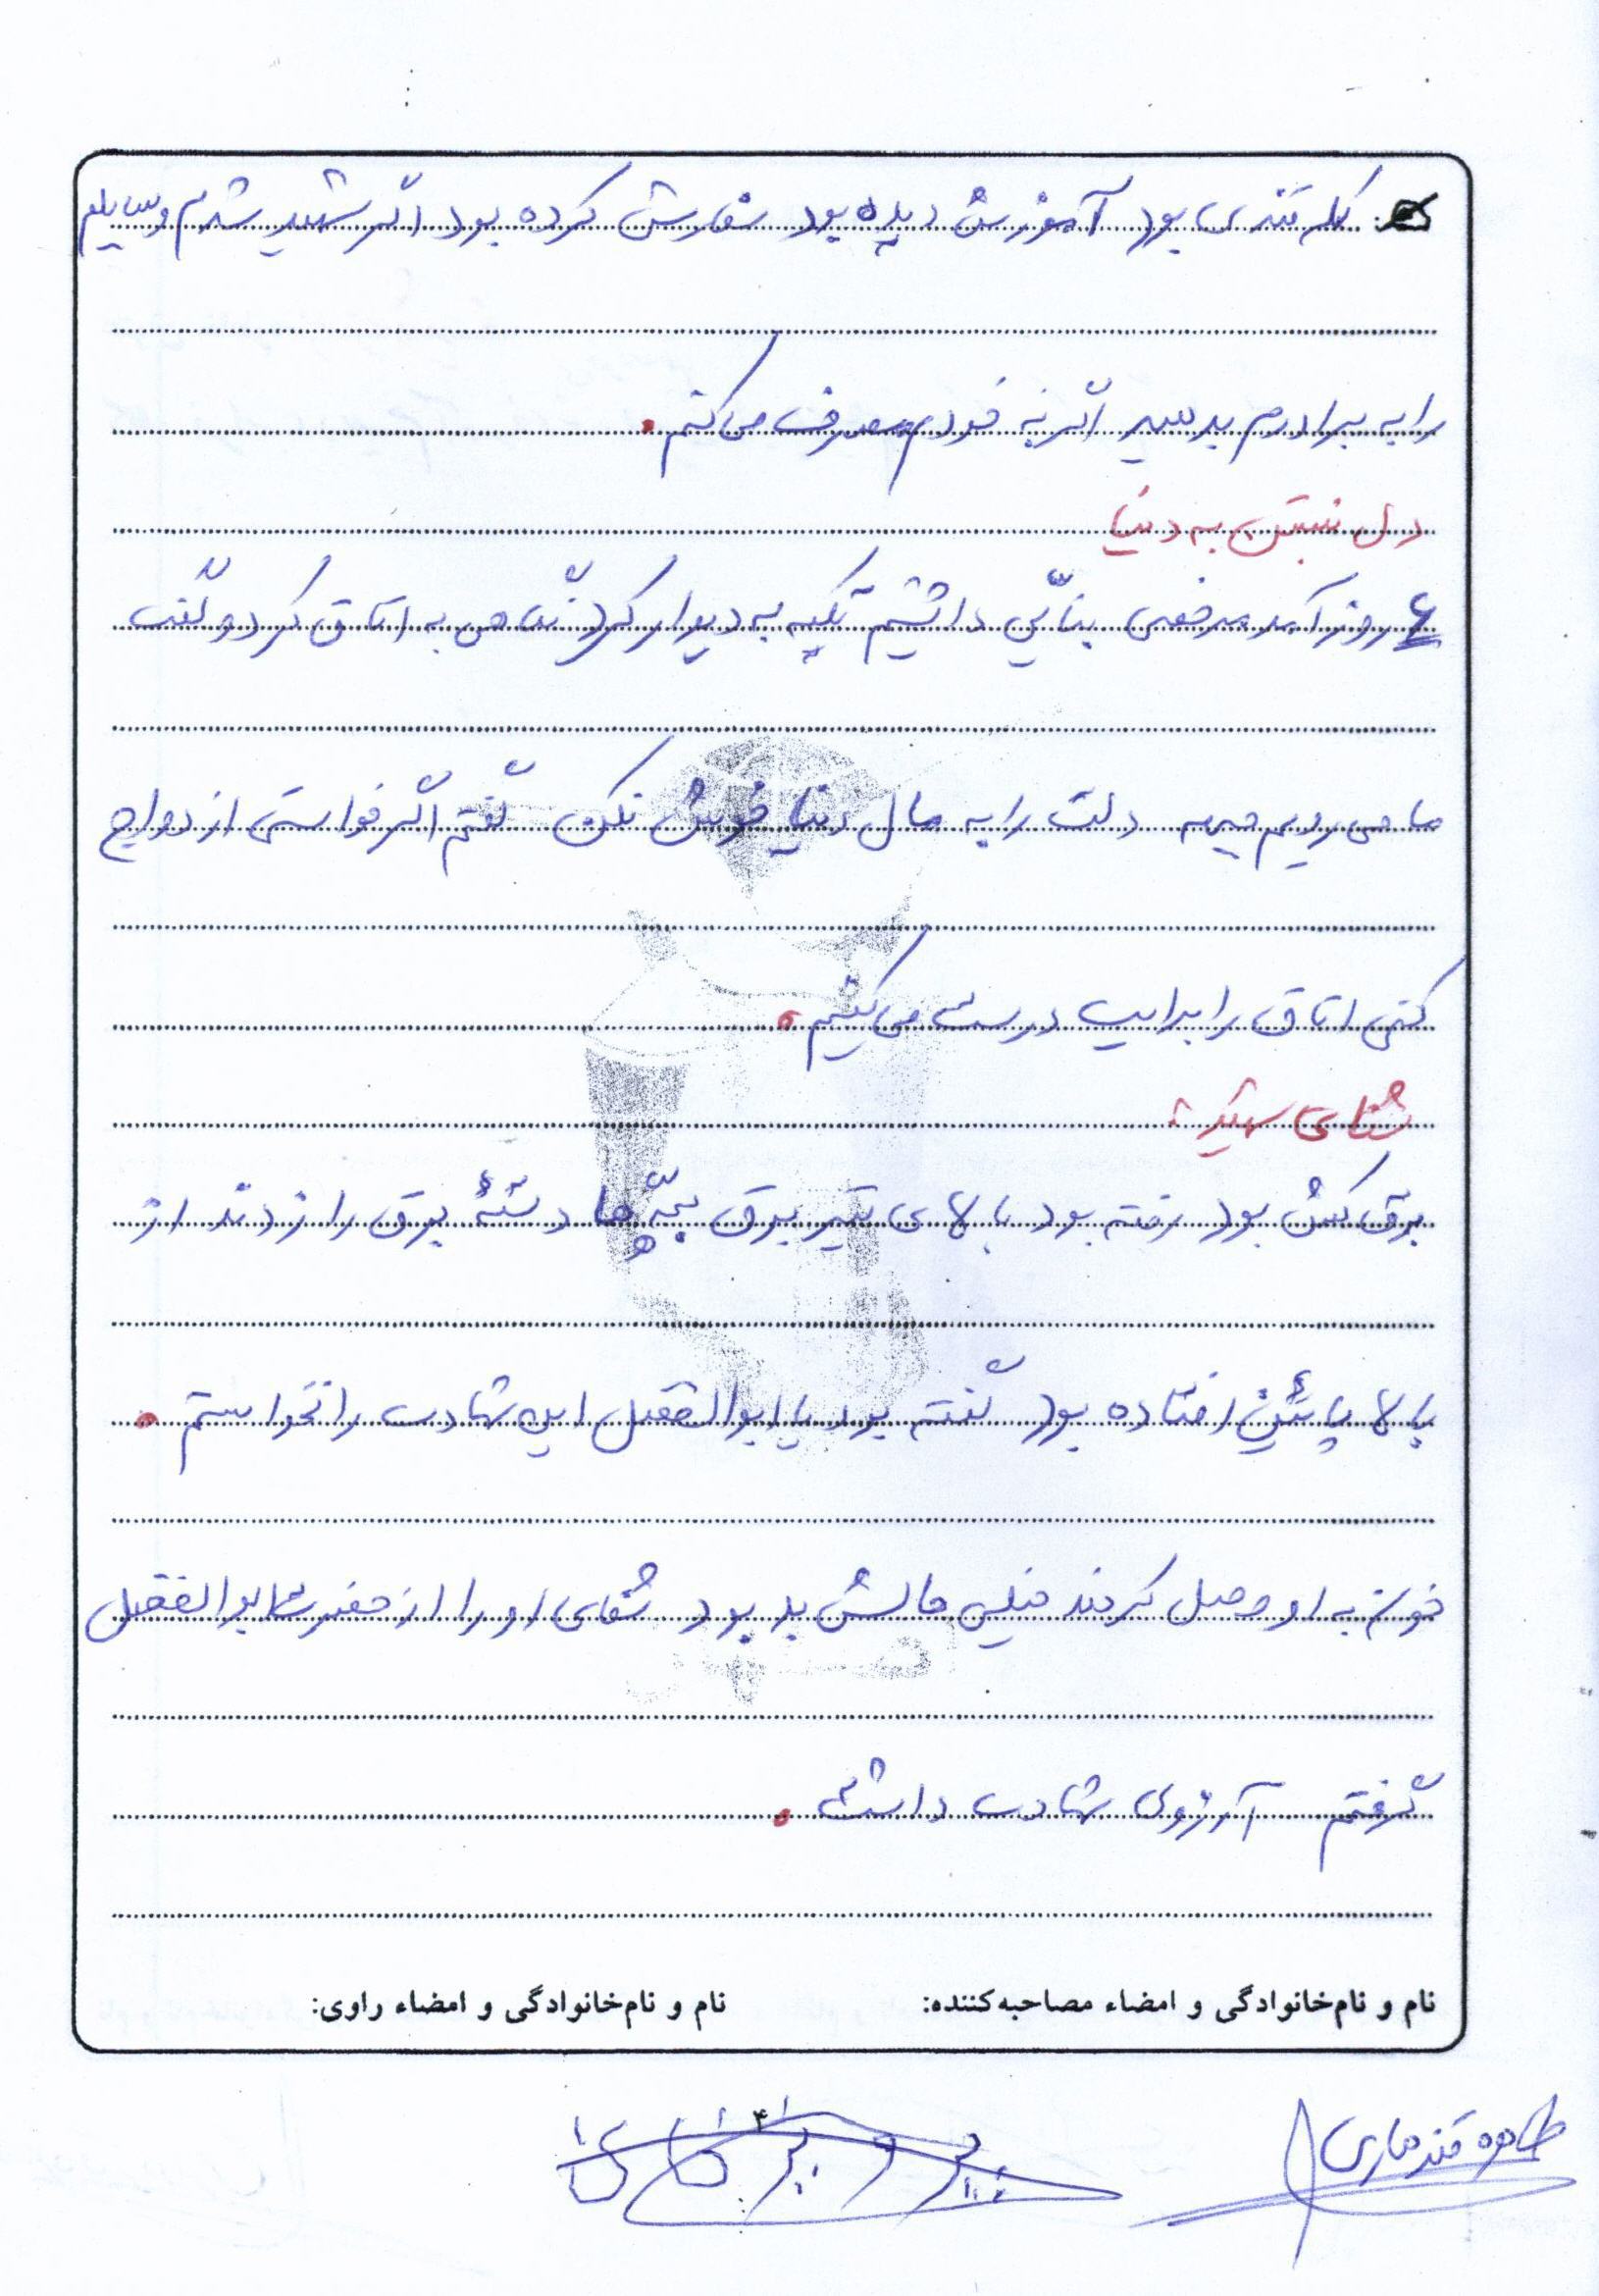 کله قندی بود آموزش دیده بود سفارش کرده بود اگر شهید شدم وسایلم
را به برادرم بدهید اگر نه خودم مصرف می‌کنم.
دل نبستن به دنیا
۶ روز آمد مرخصی بنائی داشتیم تکیه به دیوار کرد نگاهی به اتاق کرد و گفت
ما می‌رویم جبهه دلت را به مال دنیا خوش نکن گفتم اگر خواستی ازدواج
کنی اتاق را برایت درست می‌کنیم.
شفای شهید:
برق کش بود رفته بود بالای تیر برق بچّه‌ها دستهٔ برق را زدند از
بالا پائین افتاده بود گفته بود یا ابوالفضل این شهادت را نخواستم.
خون به او وصل کردند خیلی حالش بد بود شفای او را از حضرت ابوالفضل
گرفتم آرزوی شهادت داشت.
نام و نام‌خانوادگی و امضاء مصاحبه‌کننده: نام و نام‌خانوادگی و امضاء راوی:
۴
طاهره قندهاری